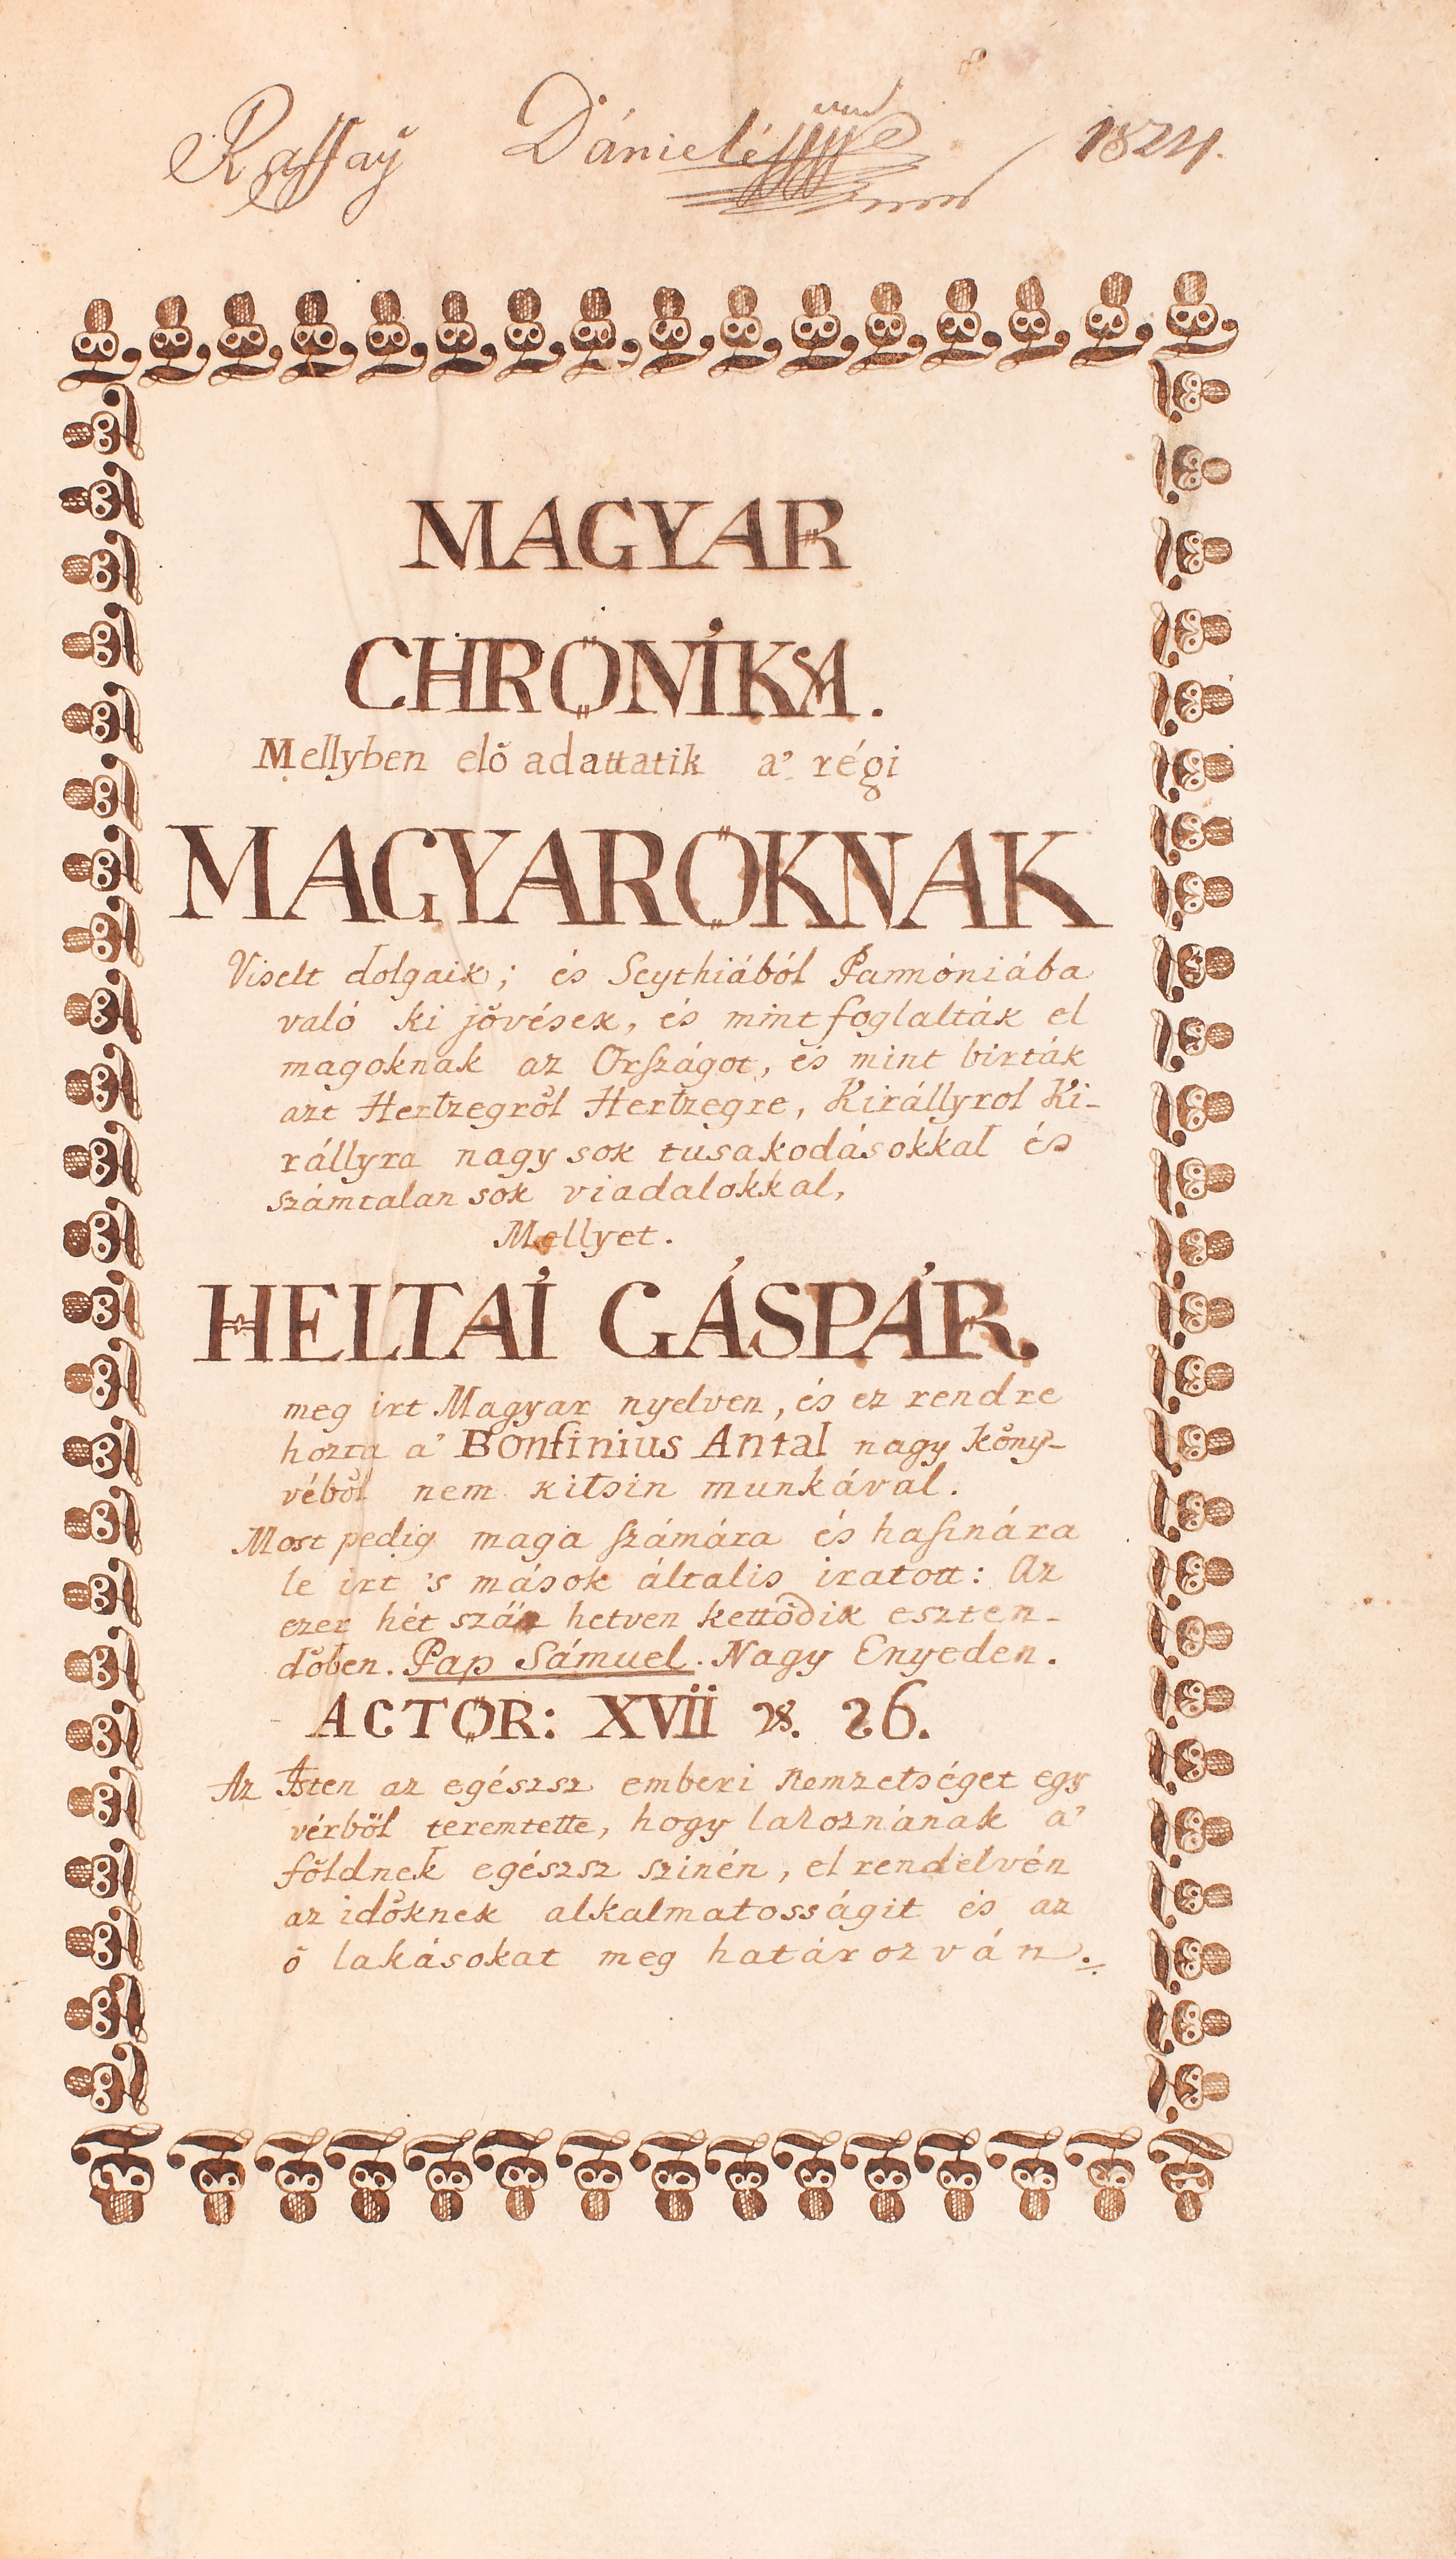 Raffay Dánielé 1824.
MAGYAR
CHRONIKA.
Mellyben elő adattatik a' régi
MAGYAROKNAK
Viselt dolgaik; és Scythiából Pannóniába
való ki jővések, és mint foglalták el
magoknak az Országot, és mint birták
azt Hertzegről Hertzegre, Királlyrol Ki-
rállyra nagy sok tusakodásokkal és
számtalan sok viadalokkal,
Mellyet.
HELTAI GÁSPÁR.
meg irt Magyar nyelven, és ez rendre
hozta a' Bonfinius Antal nagy kőny-
véből nem kitsin munkával.
Most pedig maga számára és hasznára
le irt 's mások általis iratott: Az
ezer hét száz hetven kettődik eszten-
dőben. Pap Sámuel. Nagy Enyeden.
ACTOR: XVII v. 26.
Az Isten az egészsz emberi Nemzetséget egy
vérből teremtette, hogy lakoznának a'
főldnek egészsz szinén, el rendelvén
az időknek alkalmatosságit és az
ő lakásokat meg határozván.